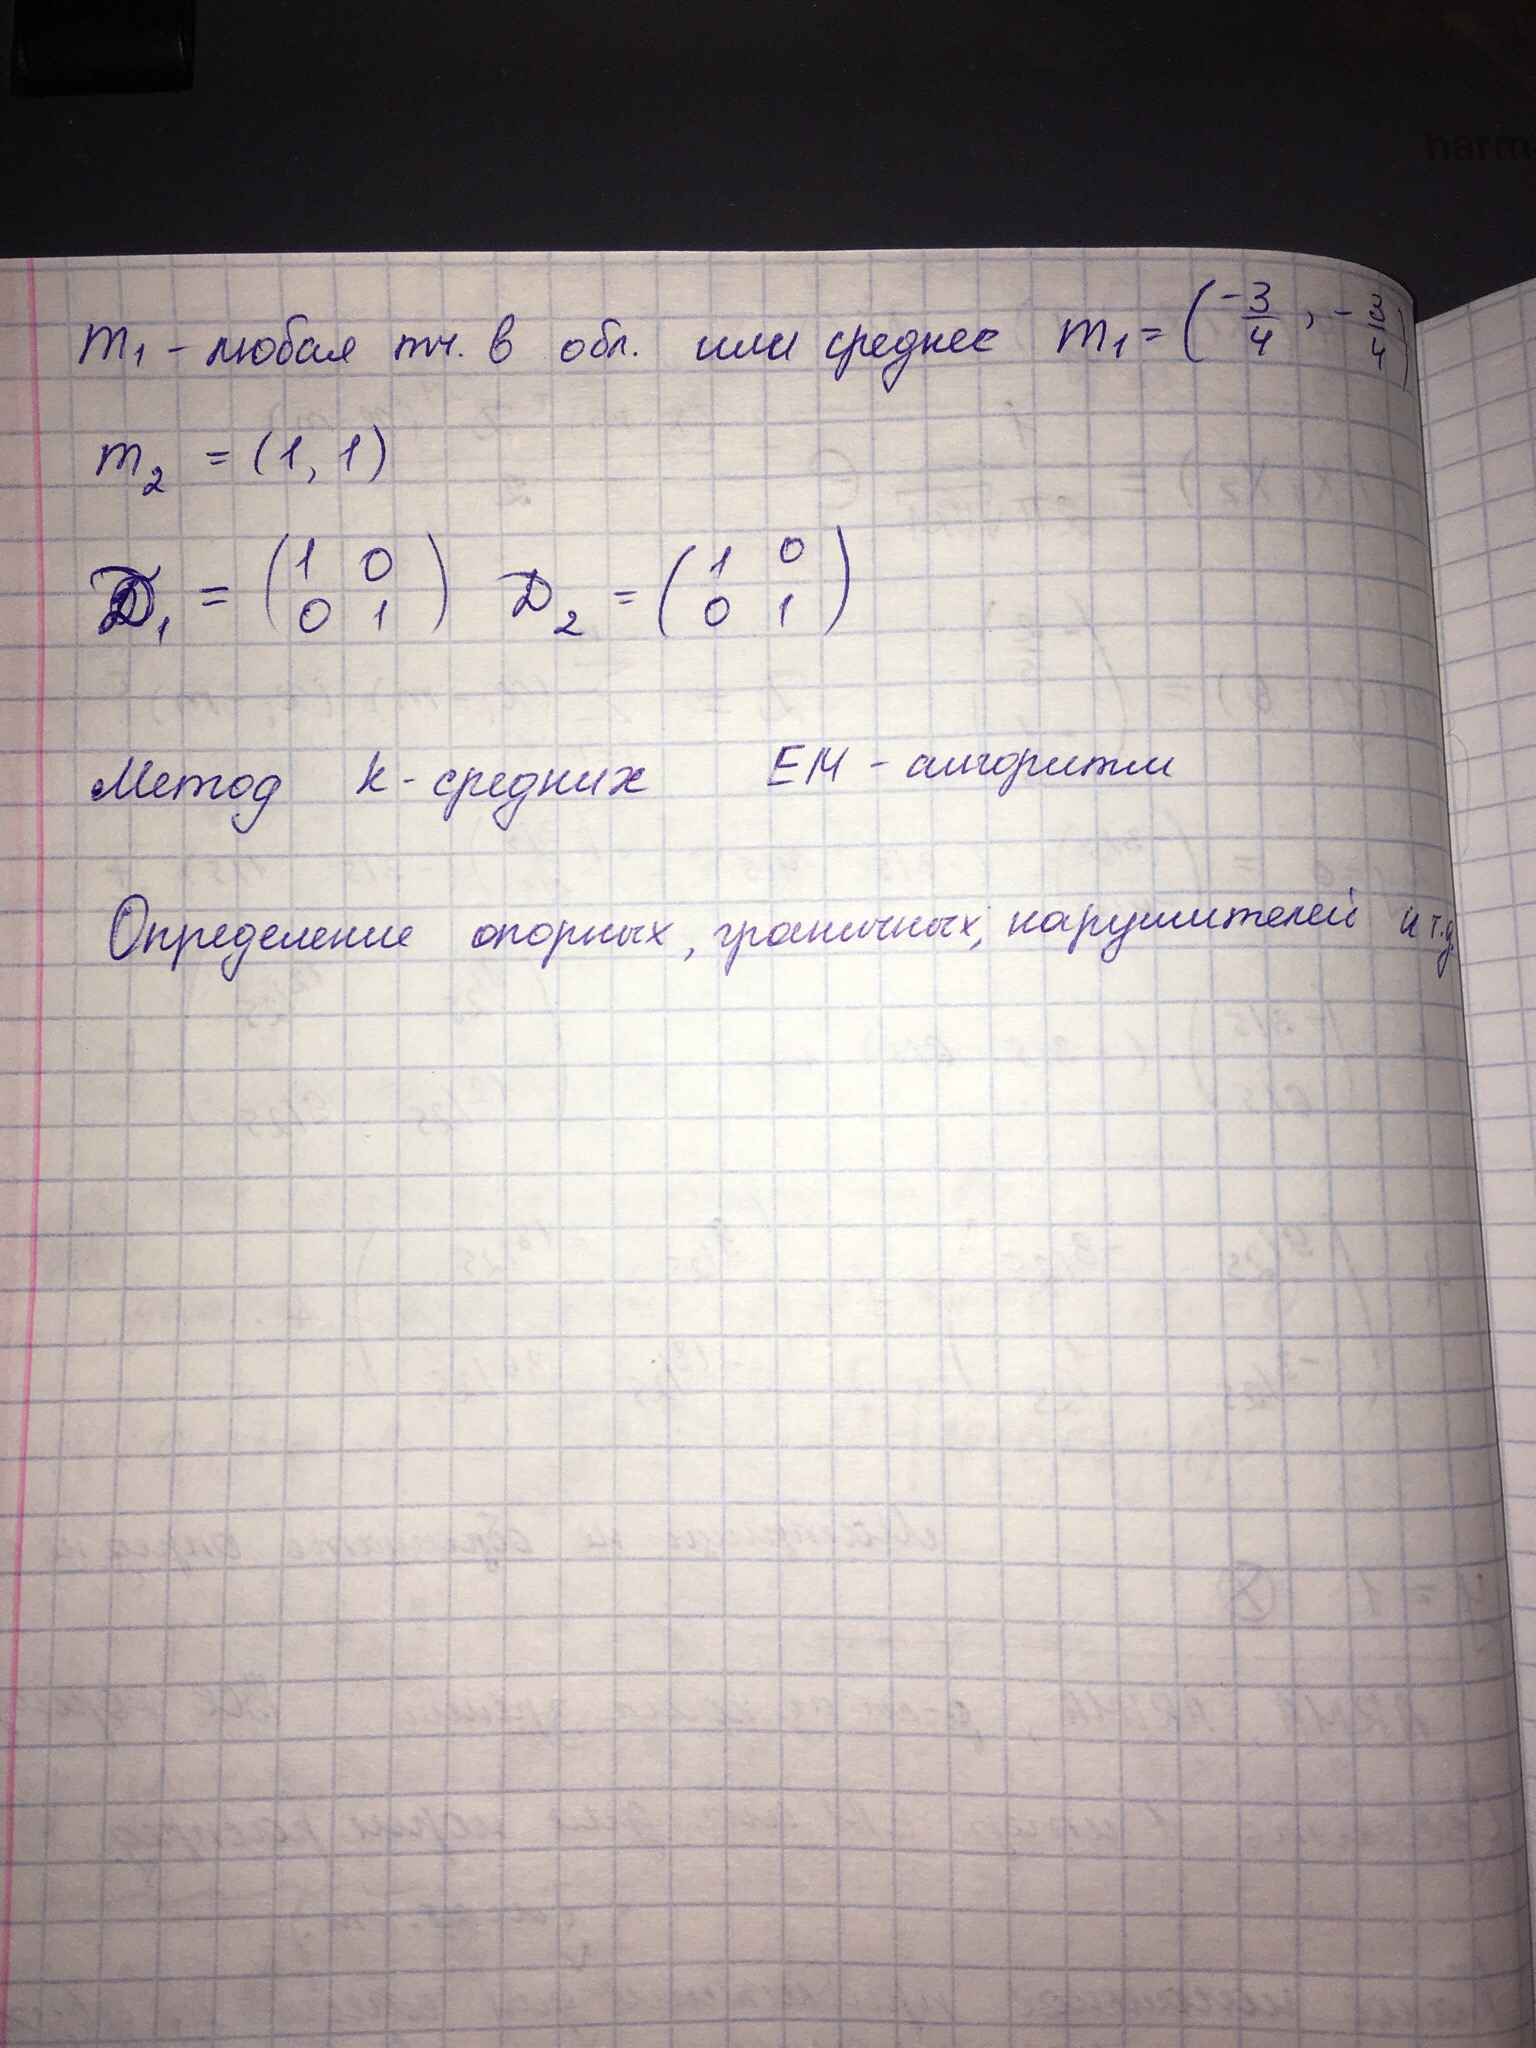 harm
m₁ - любая тч. в обл. или среднее m₁ = (-3/4, -3/4)
m₂ = (1, 1)
D₁ = (1 0
0 1) D₂ = (1 0
0 1)
Метод k-средних EM-алгоритм
Определение опорных, граничных, нарушителей и т.д.